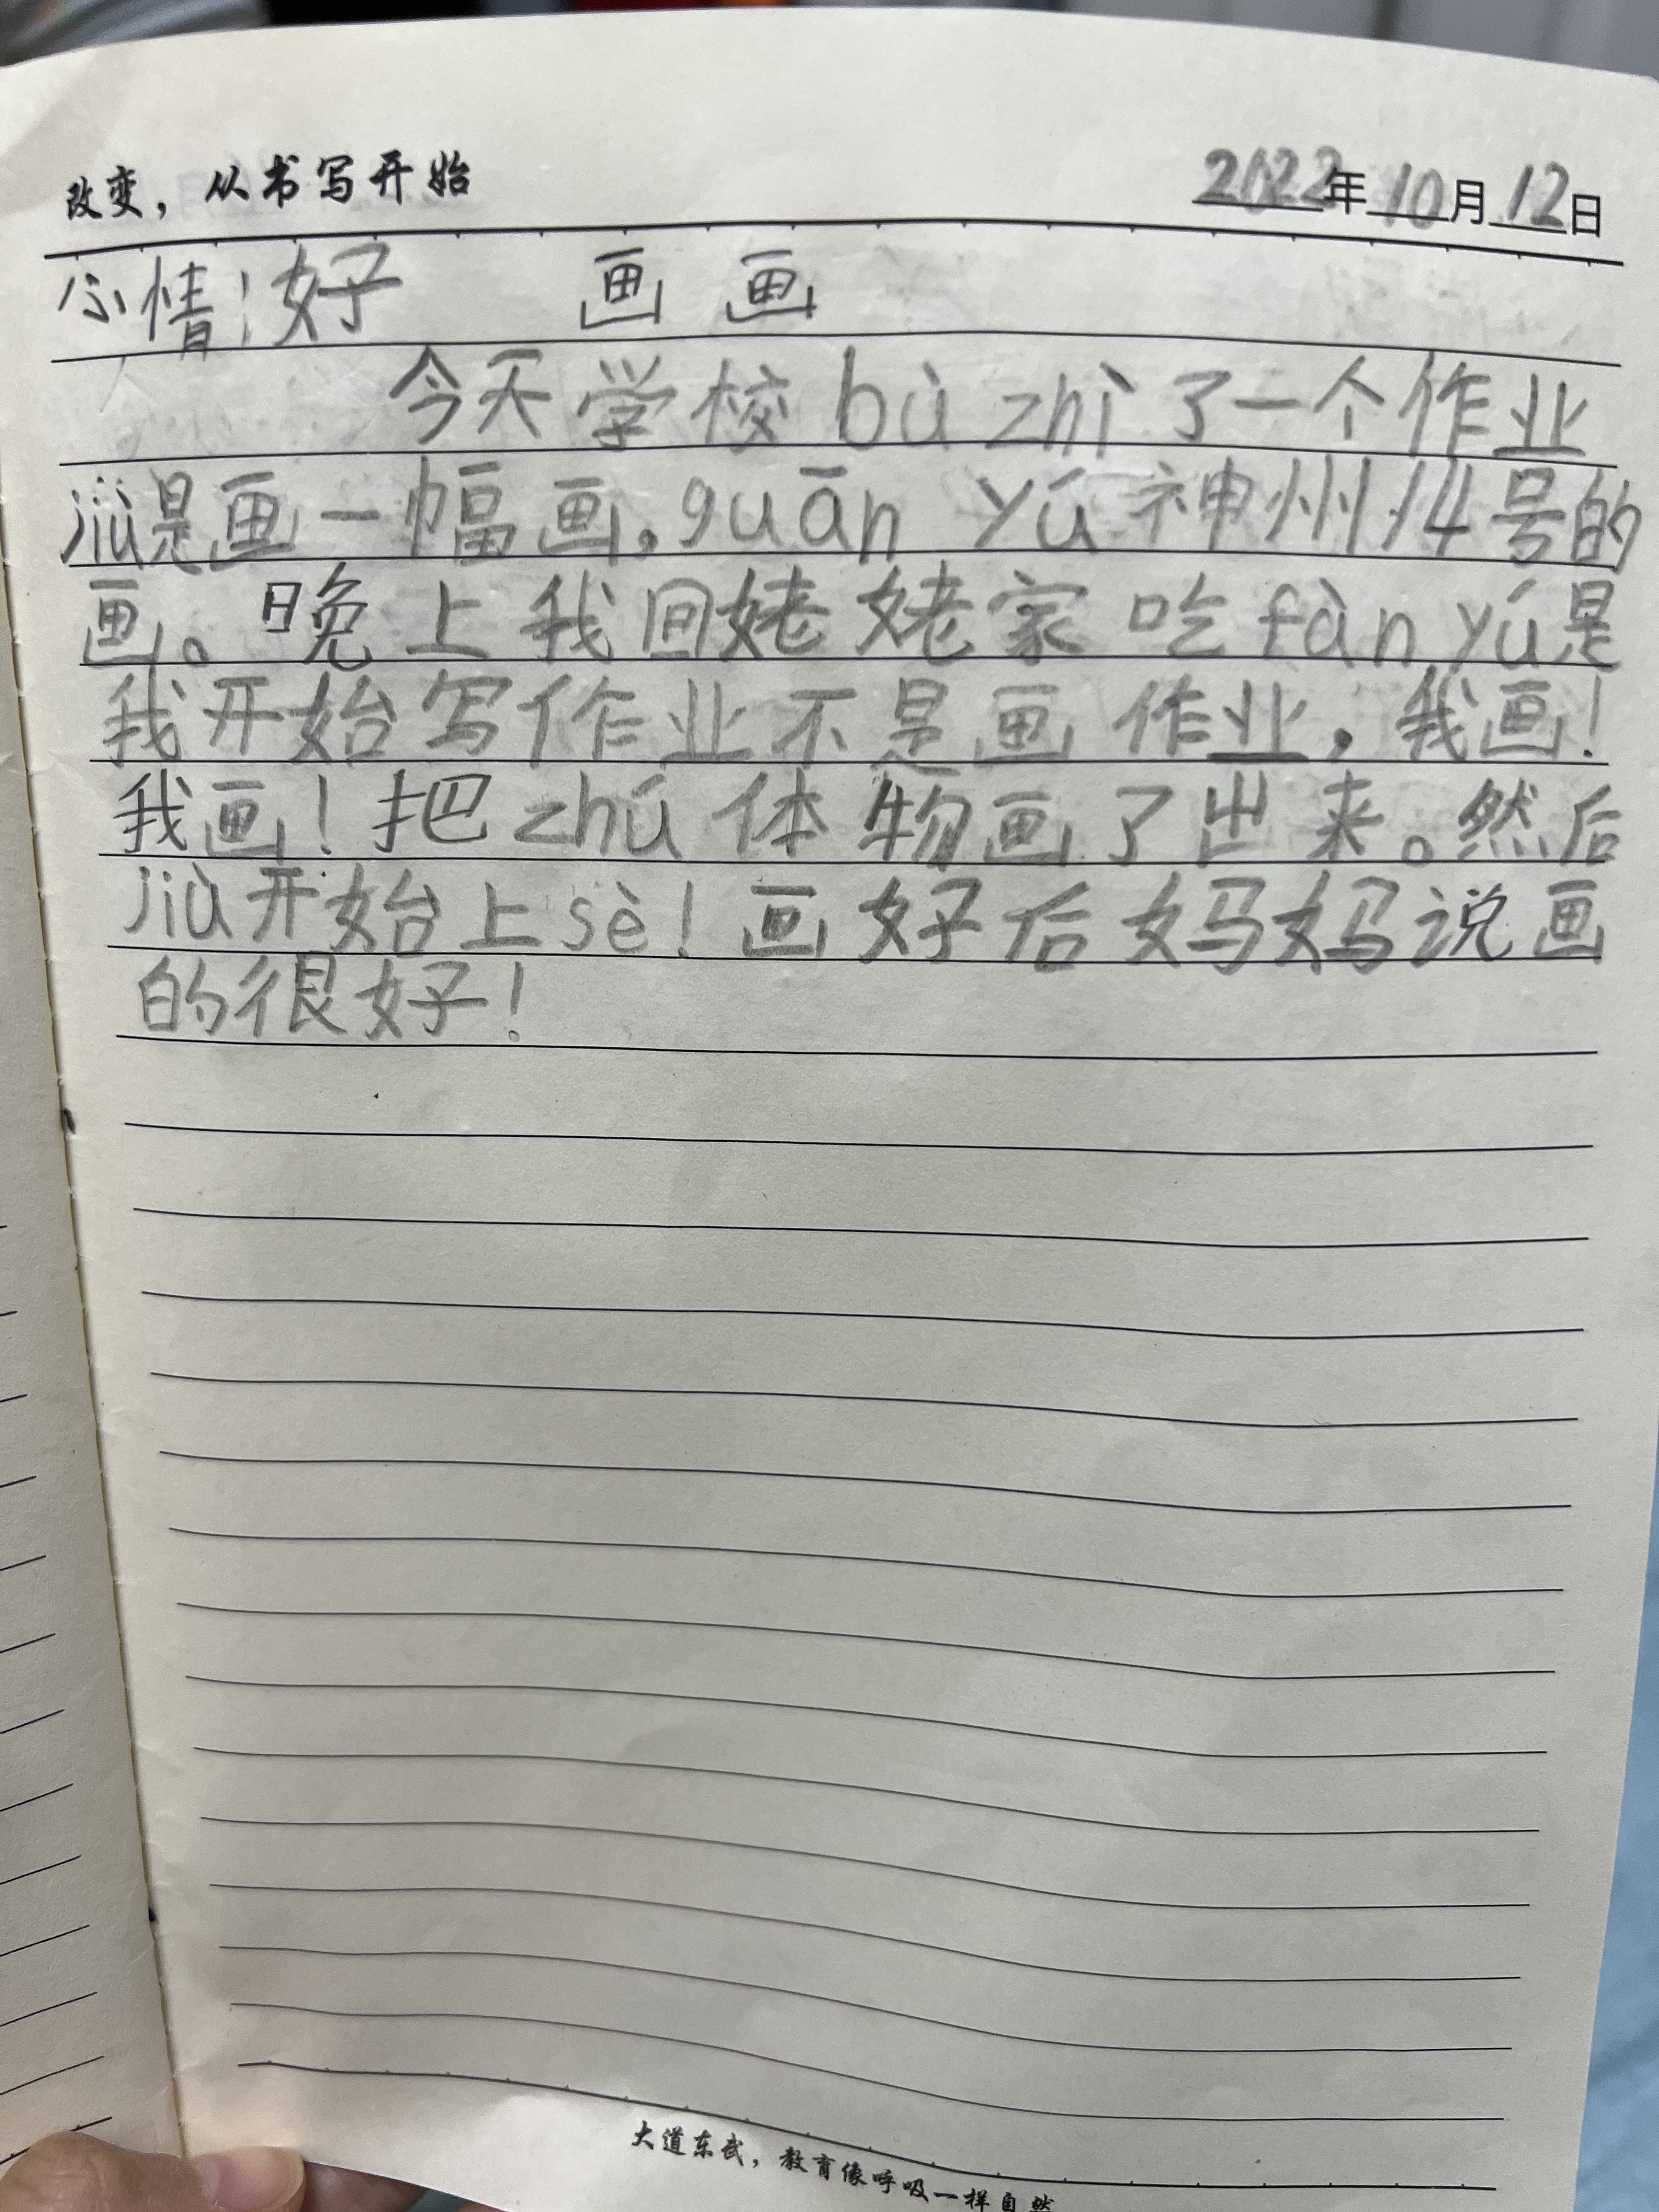 改变，从书写开始 2022年10月12日
心情：好 画画
今天学校bù zhì了一个作业
jiù是画一幅画，guān yú神州14号的
画。晚上我回姥姥家吃fàn yú是
我开始写作业不是画作业，我画！
我画！把zhú体物画了出来。然后
jiù开始上sè！画好后妈妈说画
的很好！
大道东武，教育像呼吸一样自然